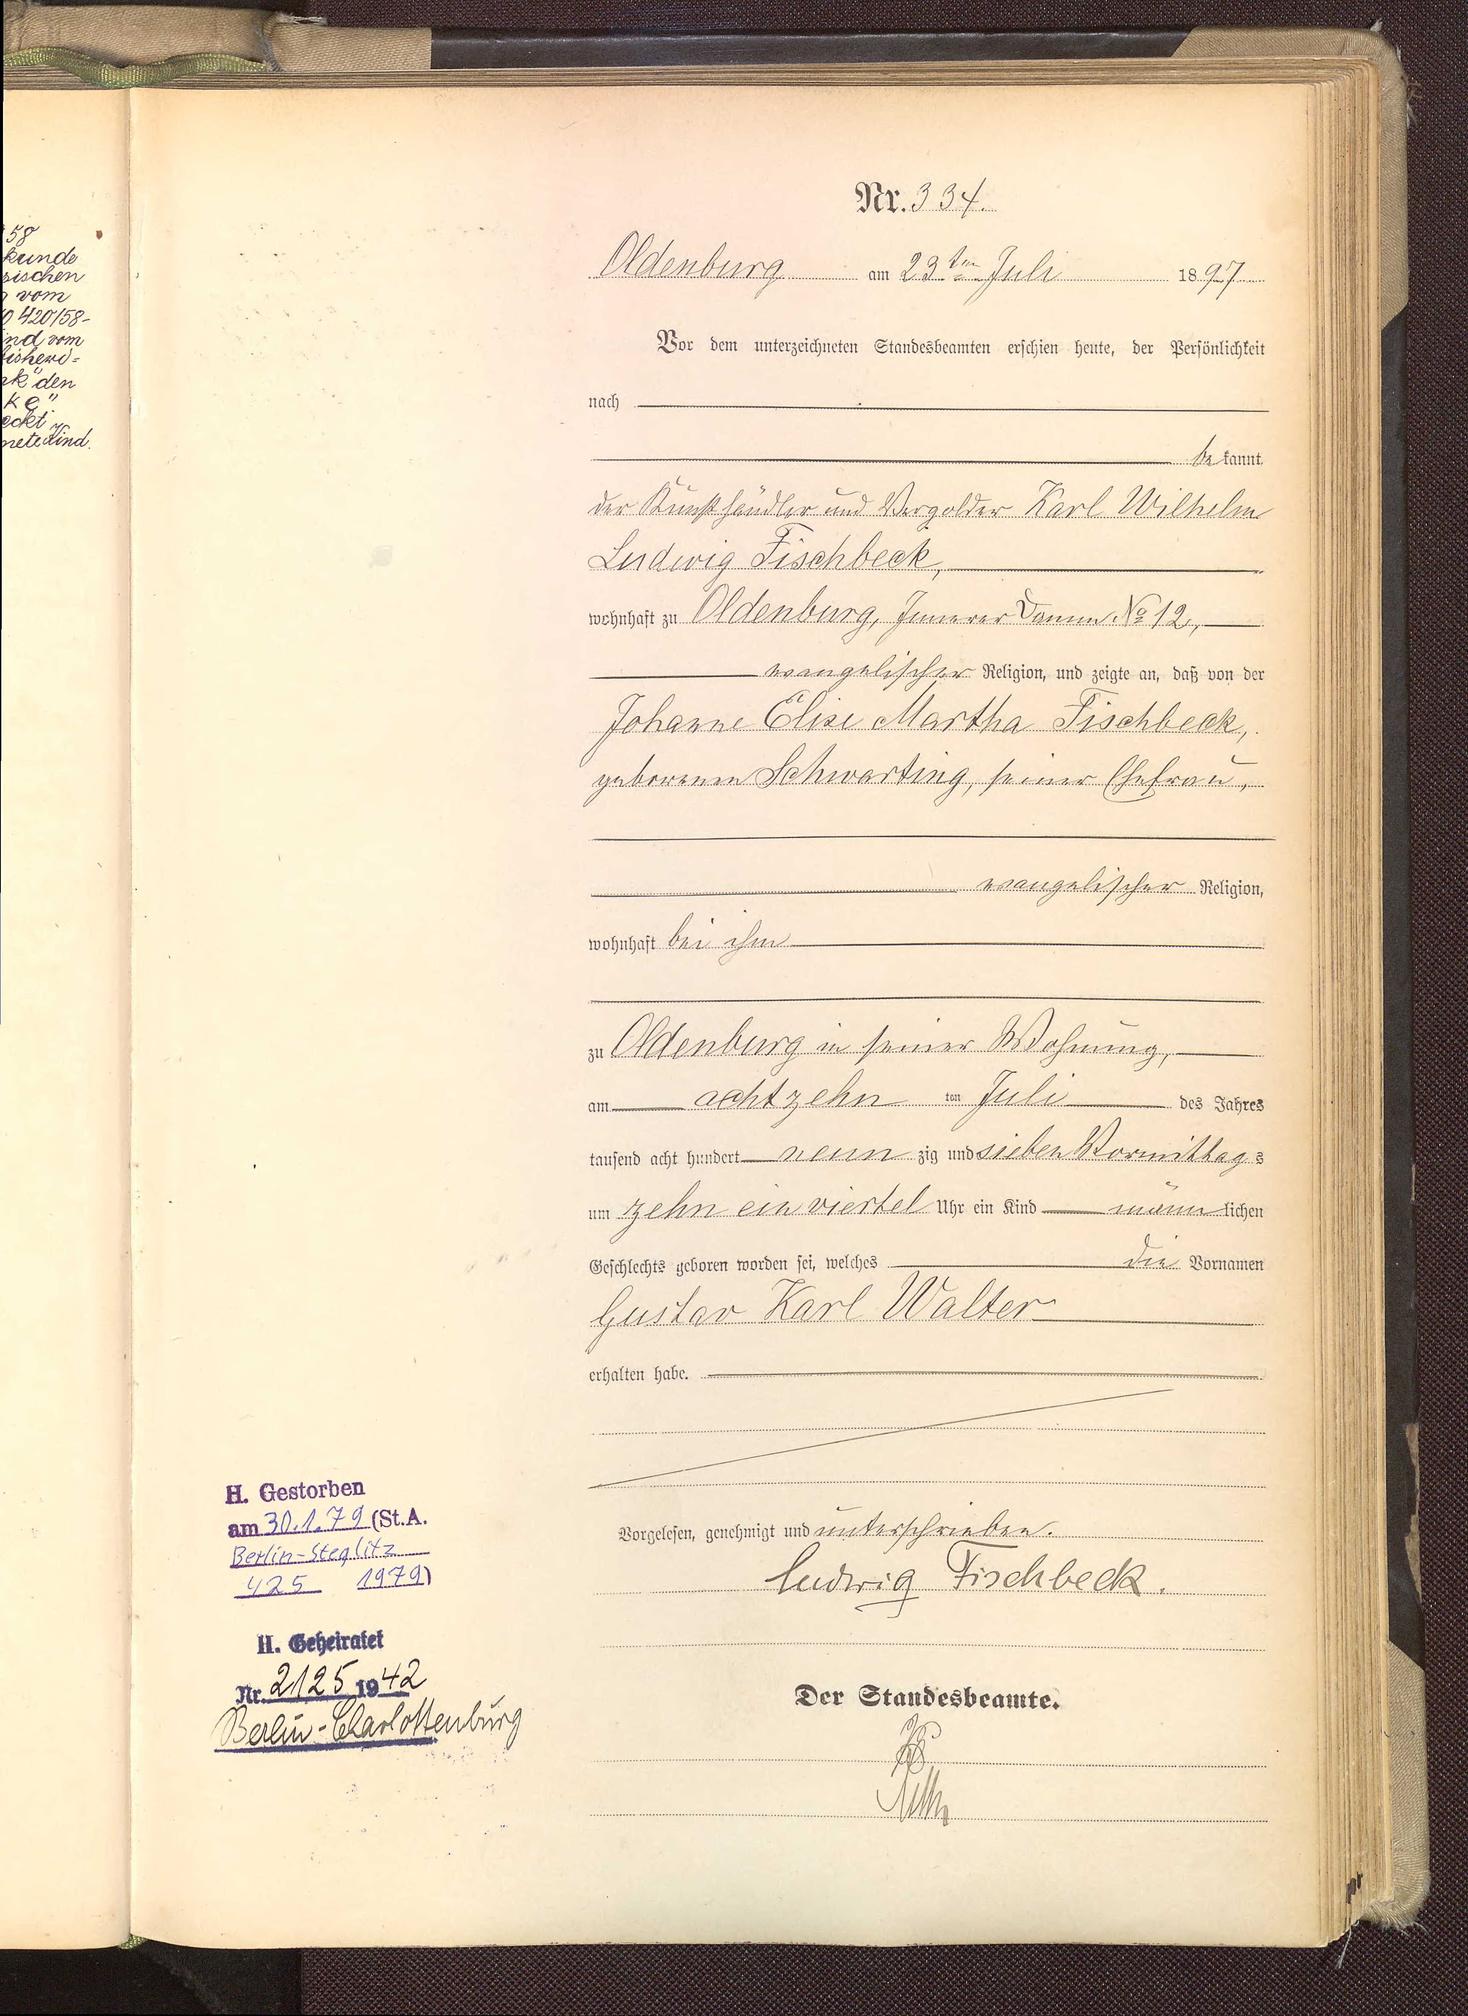 58
kunde
sischen
vom
420/58-
ind vom
bisheri=
den
ke"
eckt
nete Kind.
Nr. 334.
Oldenburg am 23ten Juli 1897
Vor dem unterzeichneten Standesbeamten erschien heute, der Persönlichkeit
nach
be kannt
der Kunsthändler und Vergolder Karl Wilhelm
Ludwig Fischbeck,
wohnhaft zu Oldenburg, Innerer Damm No 12,
evangelischer Religion, und zeigte an, daß von der
Johanne Elise Martha Fischbeck,
geborenen Schwarting, seiner Ehefrau,
evangelischer Religion,
wohnhaft bei ihm
zu Oldenburg in seiner Wohnung,
am achtzehn ten Juli des Jahres
tausend acht hundert neun zig und sieben Vormittags
um zehn ein viertel Uhr ein Kind männ lichen
Geschlechts geboren worden sei, welches die Vornamen
Gustav Karl Walter
erhalten habe.
Vorgelesen, genehmigt und unterschrieben.
Ludwig Fischbeck.
Der Standesbeamte.
H. Gestorben
am 30.1.79 (St.A.
Berlin-Steglitz
425 1979)
H. Geheiratet
Nr. 2125 1942
Berlin-Charlottenburg